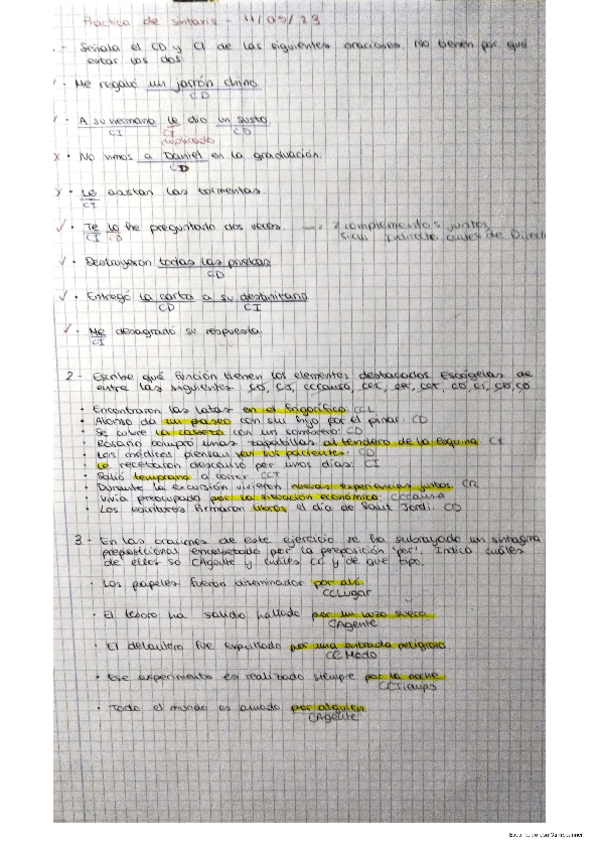 Práctica de sintaxis - 11/05/23
.- Señala el CD y CI de las siguientes oraciones. No tienen por qué
estar los dos.
· Me regaló un jarrón chino
CD
· A su hermano le dio un susto
CI CI CD
duplicado
x · No vimos a Daniel en la graduación.
CD
x · Le asustan las tormentas
CI
✓ · Te lo he preguntado dos veces. 2 complementos juntos
CI CD Indirecto antes de Directo
✓ · Destruyeron todas las pruebas
CD
✓ · Entregó la carta a su destinatario
CD CI
✓ · Me desagradó su respuesta
CI
2.- Escribe qué función tienen los elementos destacados. Escógelas de
entre las siguientes: CD, CI, CCCausa,
· Encontraron las latas en el frigorífico. CCL
· Alonso da un paseo con su hijo por el pinar: CD
· Se cubre la cabeza con un sombrero: CD
· Rosario compró unas zapatillas al tendero de la esquina. CI
· Los médicos piensan en sus pacientes:
· Le recetaron descanso por unos días: CI
· Salió temprano a correr. CCT
· Durante la excursión vivieron nuevas experiencias juntos.
· Vivía preocupado por la situación económica: CCCausa
· Los escritores firmaron libros el día de Saint Jordi. CD
3.- En las oraciones de este ejercicio se ha subrayado un sintagma
preposicional encabezado por la preposición "por". Indica cuáles
de ellos so CAgente y cuáles CC y de qué tipo.
· Los papeles fueron diseminados por ahí
CCLugar
· El tesoro ha sido hallado por un buzo
CAgente
· El delantero fue expulsado por una entrada peligrosa
CCModo
· Ese experimento es realizado siempre por la noche
CCTiempo
· Todo el mundo es amado por alguien
CAgente